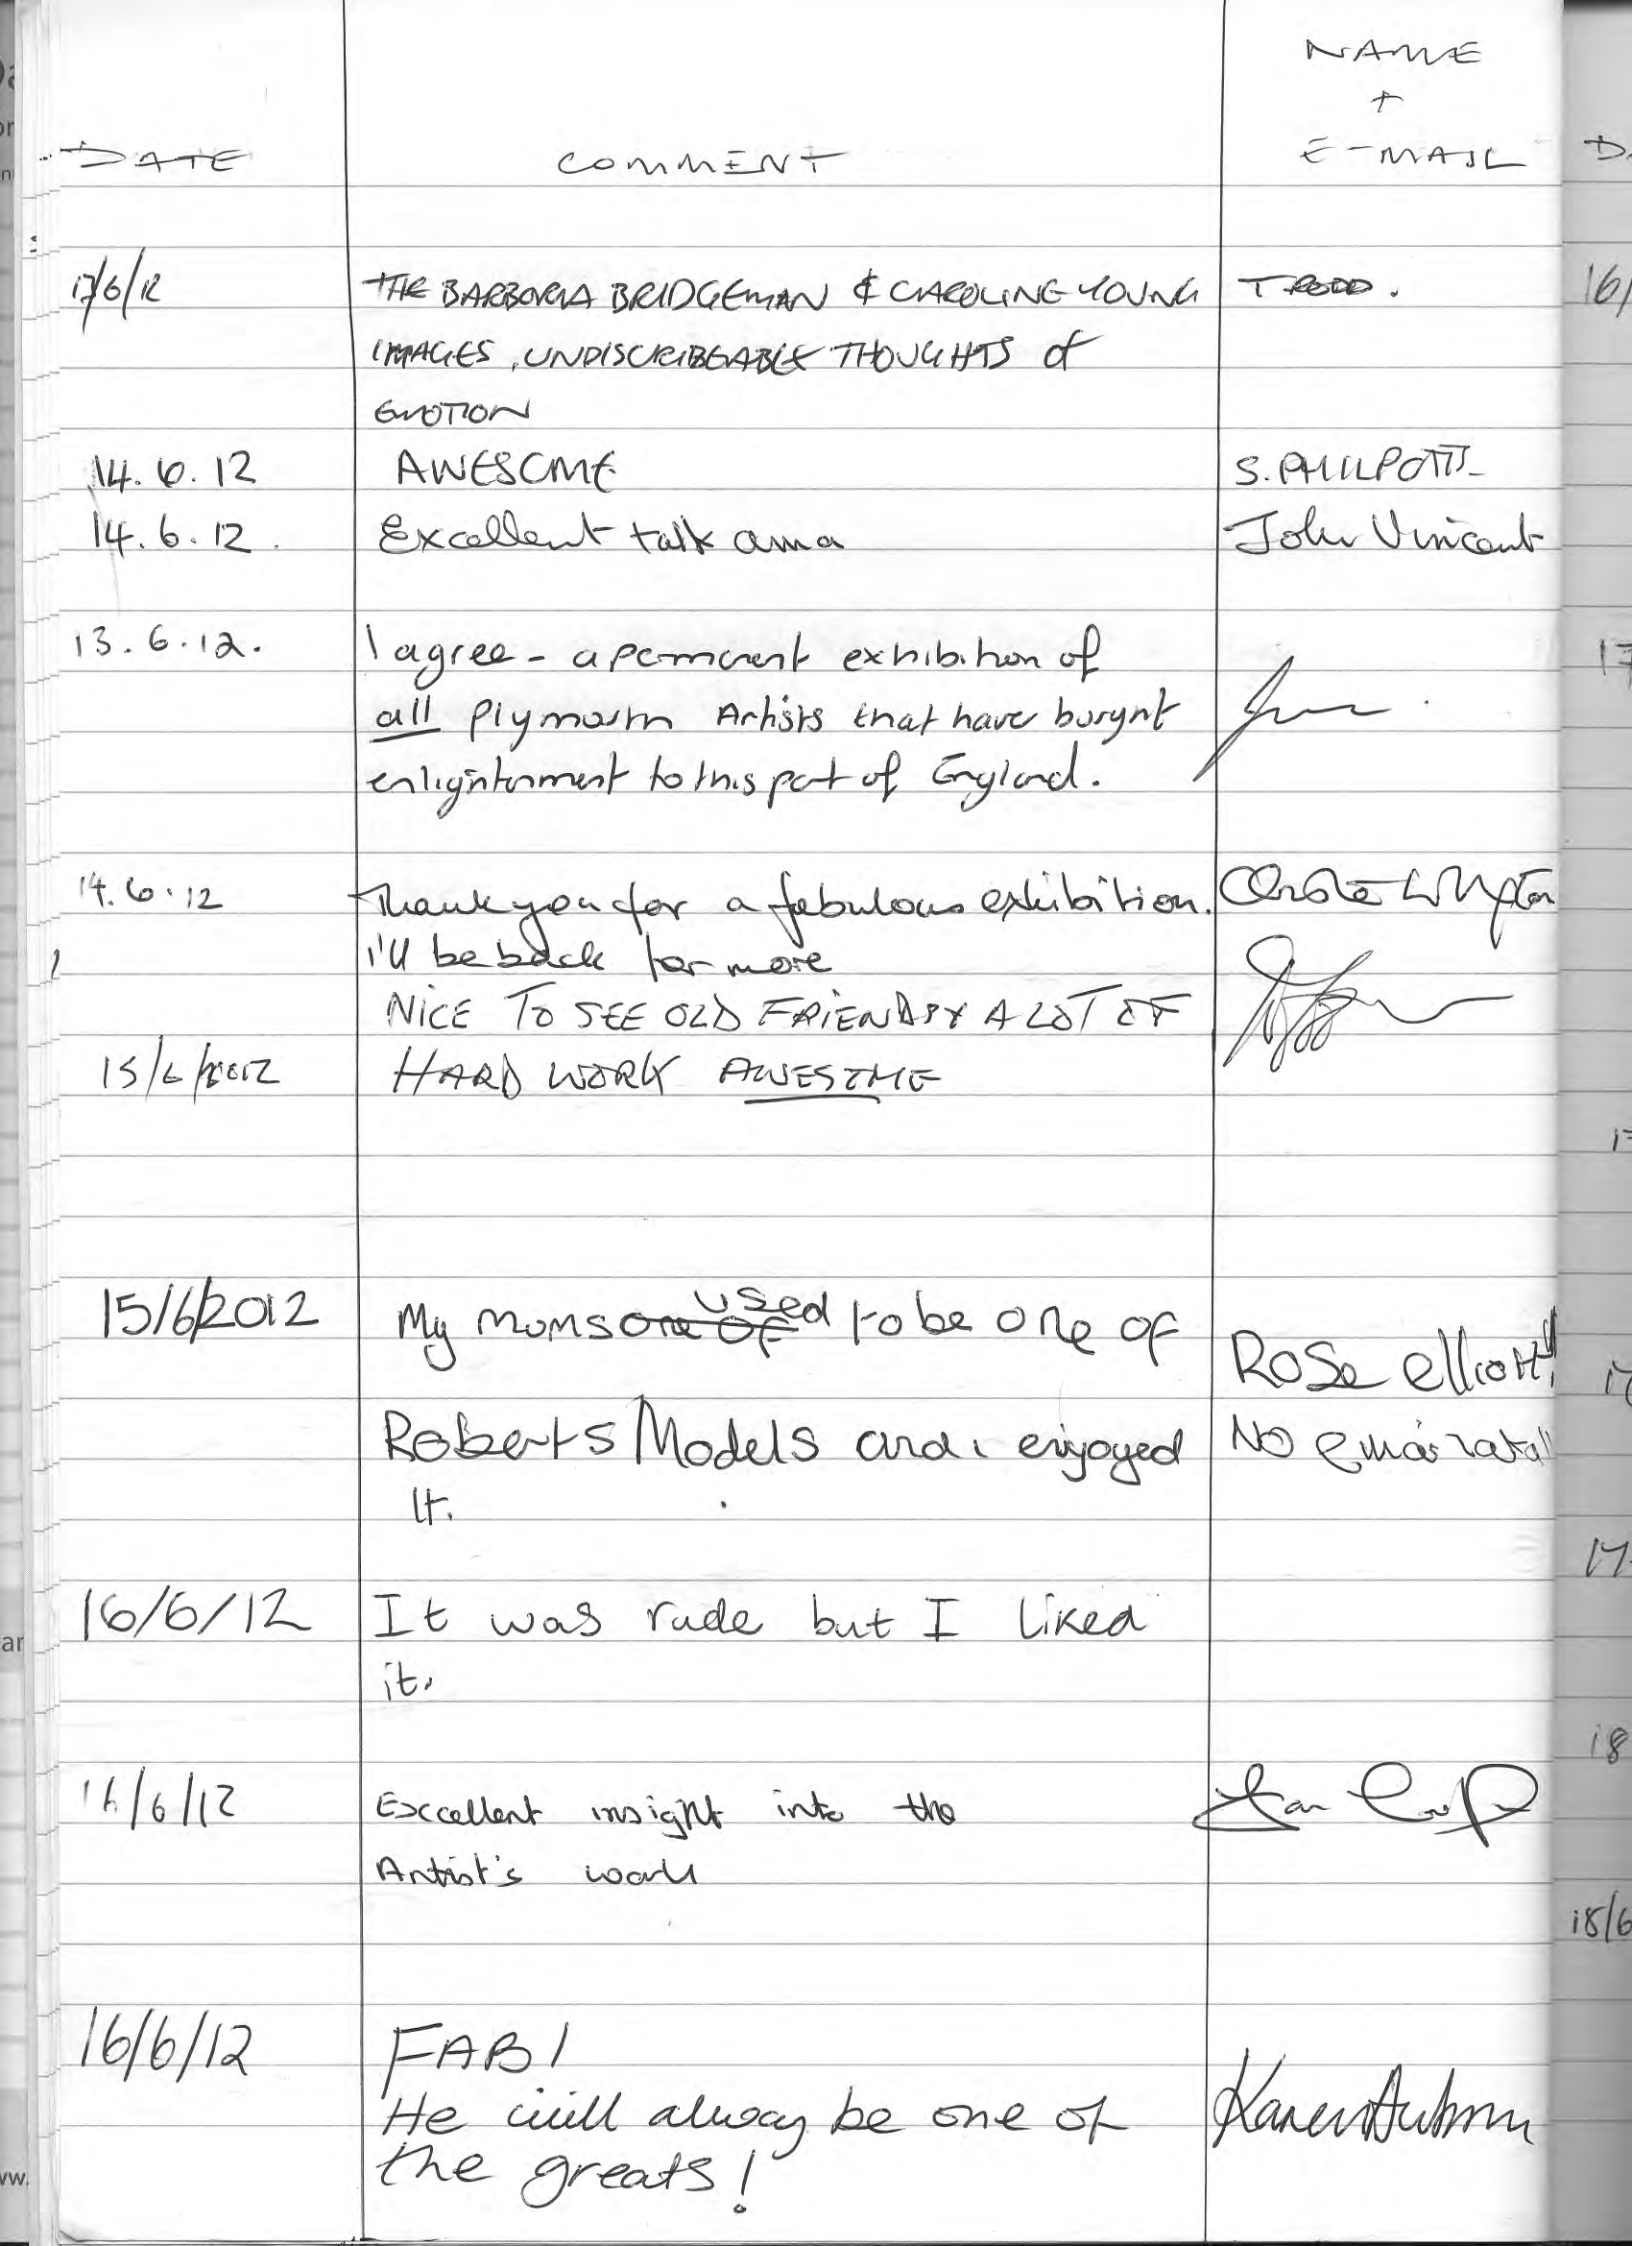 NAME
+
DATE COMMENT E-MAIL
17/6/12 THE BARBORIA BRIDGEMAN & CAROLINE YOUNG T RODD.
IMAGES, UNDISCRIBEABLE THOUGHTS of
EMOTION
14.6.12 AWESOME S. PHILPOTT
14.6.12. Excellent talk John Vincent
13.6.12. I agree - a permanent exhibition of
all Plymouth Artists that have
enlightenment to this part of England.
14.6.12 Thank you for a fabulous exhibition.
I'll be back for more
NICE TO SEE OLD FRIENDS A LOT OF
15/6/2012 HARD WORK AWESOME
15/6/2012 My mums one of used to be one of
Rose elliott!!
Roberts Models and i enjoyed No
It.
16/6/12 It was rude but I liked
it.
16/6/12 Excellent insight into the
Artist's work
16/6/12 FAB!
He will always be one of Karen
the greats!
D
16/
17
18
18/6